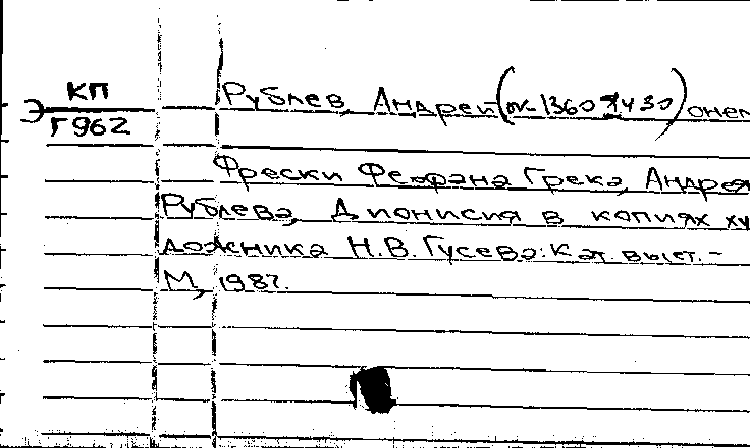 КП Рублев, Андрей (ок. 1360-1430) о нем
Э
Г962
Фрески Феофана Грека, Андрея
Рублева, Дионисия в копиях ху
дожника Н.В. Гусева: Кат. выст. -
М, 1987.